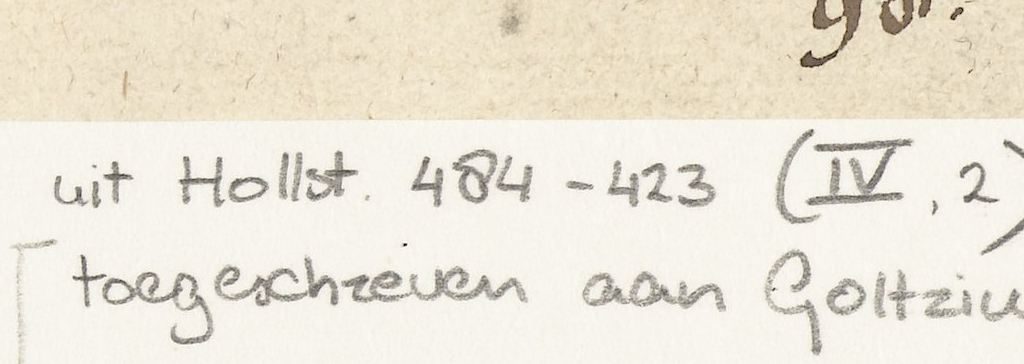 uit Hollst. 484 - 423 (IV, 2)
toegeschreven aan Goltziu